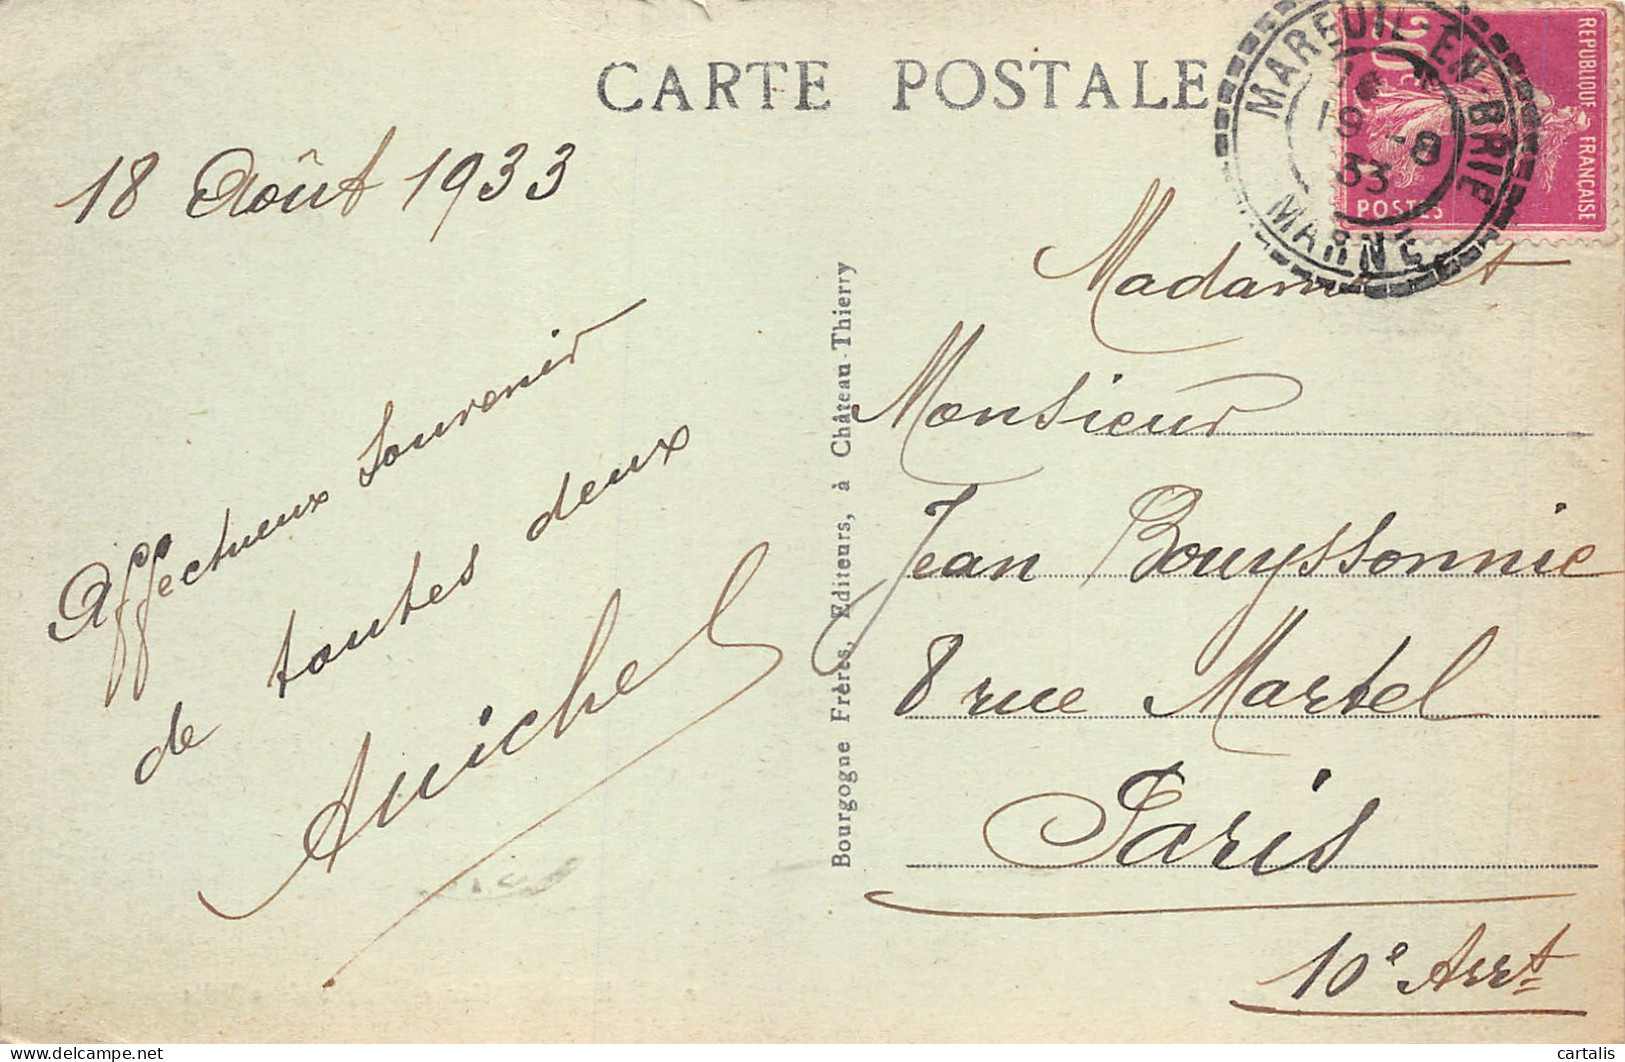 CARTE POSTALE
18 Août 1933
Affectueux Souvenir
de toutes deux
Bourgogne Frères, Editeurs, à Château-Thierry
MAREUIL-EN-BRIE
19 -8
33
MARNE
20c
REPUBLIQUE FRANÇAISE
POSTES
Madame et
Monsieur
Jean Bouyssonnie
8 rue Martel
Paris
10e Arrt
cartalis